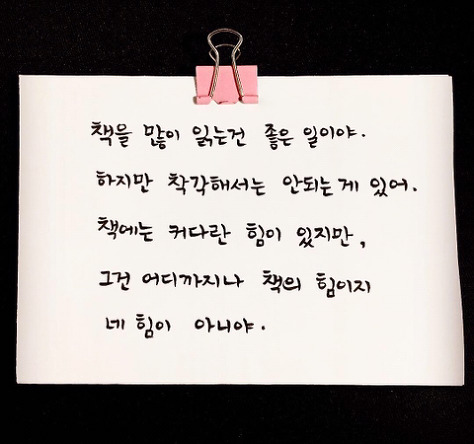 책을 많이 읽는건 좋은 일이야.
하지만 착각해서는 안되는게 있어.
책에는 커다란 힘이 있지만,
그건 어디까지나 책의 힘이지
네 힘이 아니야.